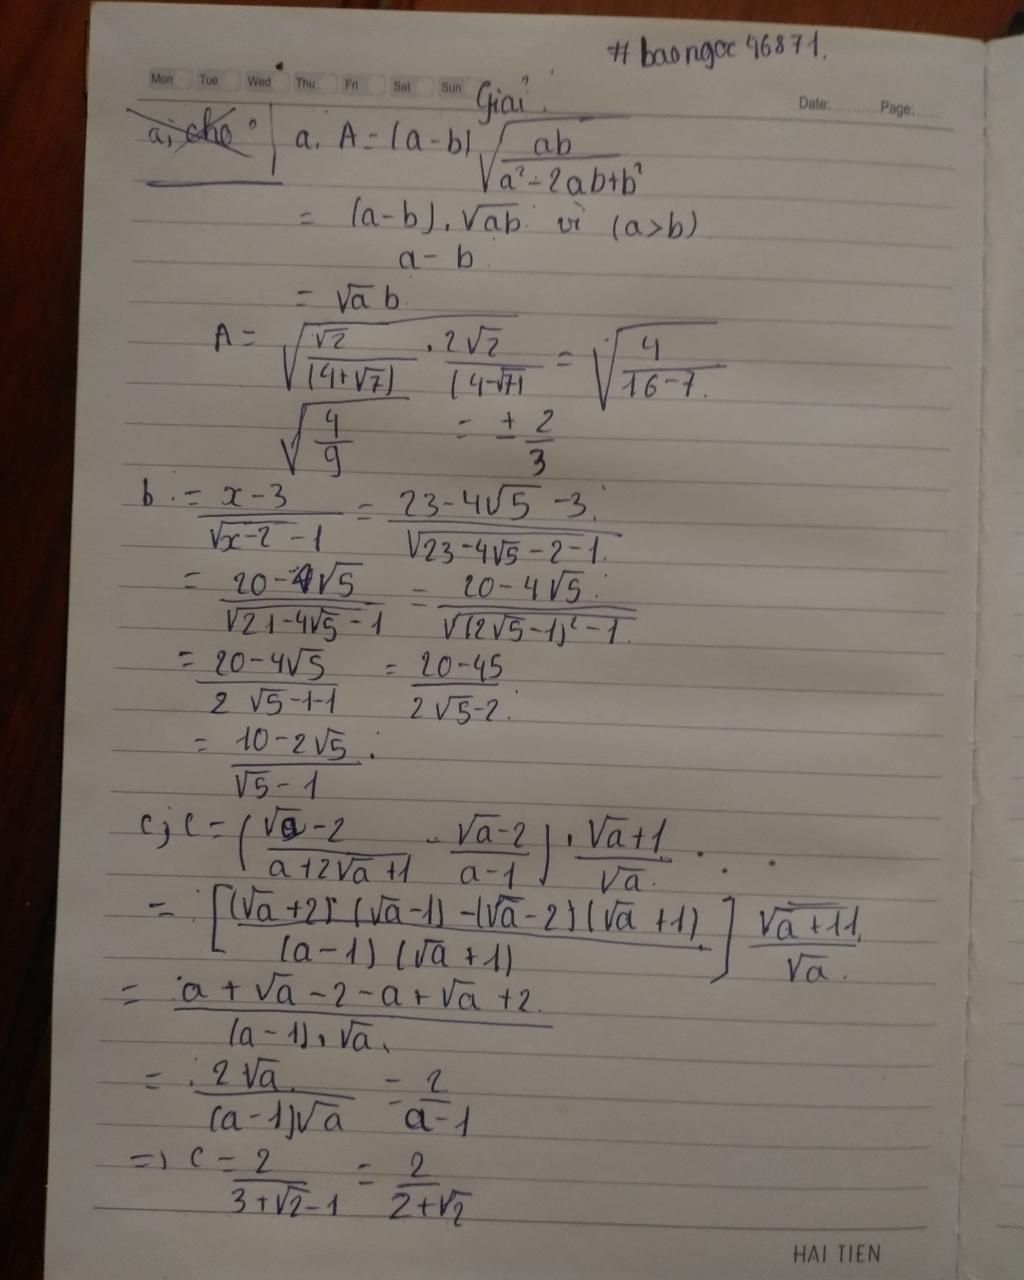 # baongoc 46871.
Mon Tue Wed Thu Fri Sat Sun
Giải.
Date:.......... Page:......
a; cho
a. A = (a-b) √(ab/(a²-2ab+b²))
= (a-b).√ab / a-b vì (a>b)
= √a b
A = √(√2/(4+√7) . 2√2/(4-√7)) = √(4/(16-7.))
√(4/9) = ± 2/3
b. = (x-3)/(√x-2 -1) = (23-4√5 -3.)/(√23-4√5-2-1.)
= (20-4√5)/(√21-4√5-1) = (20-4√5.)/(√(2√5-1)²-1.)
= (20-4√5)/(2√5-1-1) = (20-45)/(2√5-2.)
= (10-2√5)/(√5-1).
c; C = ((√a-2)/(a+2√a+1) - (√a-2)/(a-1)) . (√a+1)/(√a.)
= [((√a+2)(√a-1)-(√a-2)(√a+1))/((a-1)(√a+1))] (√a+11)/(√a.)
= (a+√a-2-a+√a+2.)/((a-1).√a.)
= (2√a)/((a-1)√a) = 2/(a-1)
=> C = 2/(3+√2-1) = 2/(2+√2)
HAI TIEN